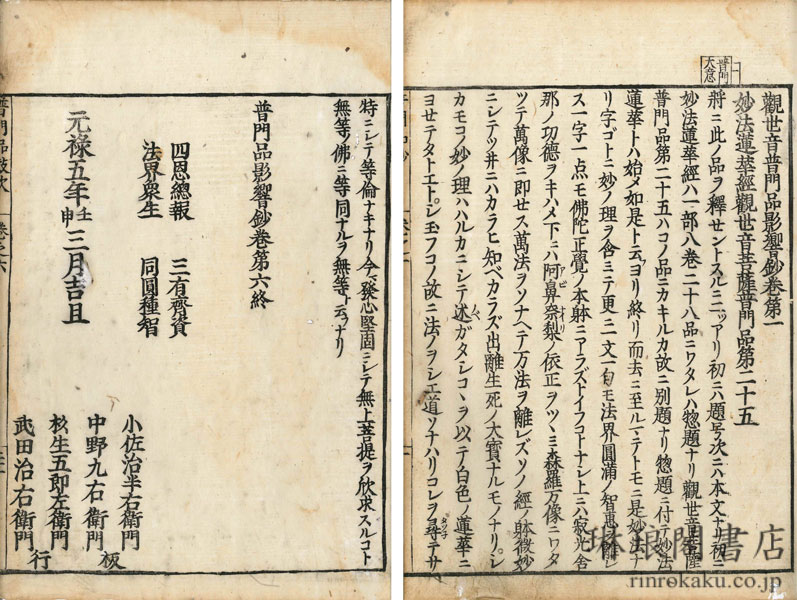 普門
大意
觀世音普門品影響鈔卷第一
妙法蓮華經觀世音菩薩普門品第二十五
將ニ此ノ品ヲ釋セントスルニ二ツアリ初ニハ題号次ニハ本文ナリ初ニ
妙法蓮華經ハ一部八巻二十八品ニワタレハ惣題ナリ觀世音菩薩
普門品第二十五ハコノ品ニカキルカ故ニ別題ナリ惣題ニ付テ妙法
蓮華トハ始メ如是ト云ヨリ終リ而去ニ至ルマテトモニ是妙法ナ
リ字ゴトニ妙ノ理ヲ含ミテ更ニ一文一句モ法界圓滿ノ智惠ヲ離レ
ス一字一点モ佛陀正覺ノ本躰ニアラズトイフコトナシ上ハ寂光舎
那ノ功德ヲキハメ下ハ阿鼻奈梨ノ依正ヲツヽミ森羅万像ニワタ
ツテ萬像ニ即セス萬法ヲソナヘテ万法ヲ離レズソノ經ノ躰微妙
ニシテツ井ニハカラヒ知ベカラズ出離生死ノ大寳ナルモノナリシ
カモコノ妙ノ理ハハルカニシテ述ガタシコヽヲ以テノ白色ノ蓮華ニ
ヨセテタトエトシ玉フコノ故ニ法ノヲシエ道ソナハリコレヲ尋テサ
特ニシテ等倫ナキナリ今發心堅固ニシテ無上菩提ヲ欣求スルコト
無等佛ニ等同ナルヲ無等々云フナリ
普門品影響鈔卷第六終
四恩總報 三有齊資
法界衆生 同圓種智
元祿五年壬申三月吉旦
小佐治半右衛門
中野九右衛門
杉生五郎左衛門
武田治右衛門
板行
琳琅閣書店
rinrokaku.co.jp